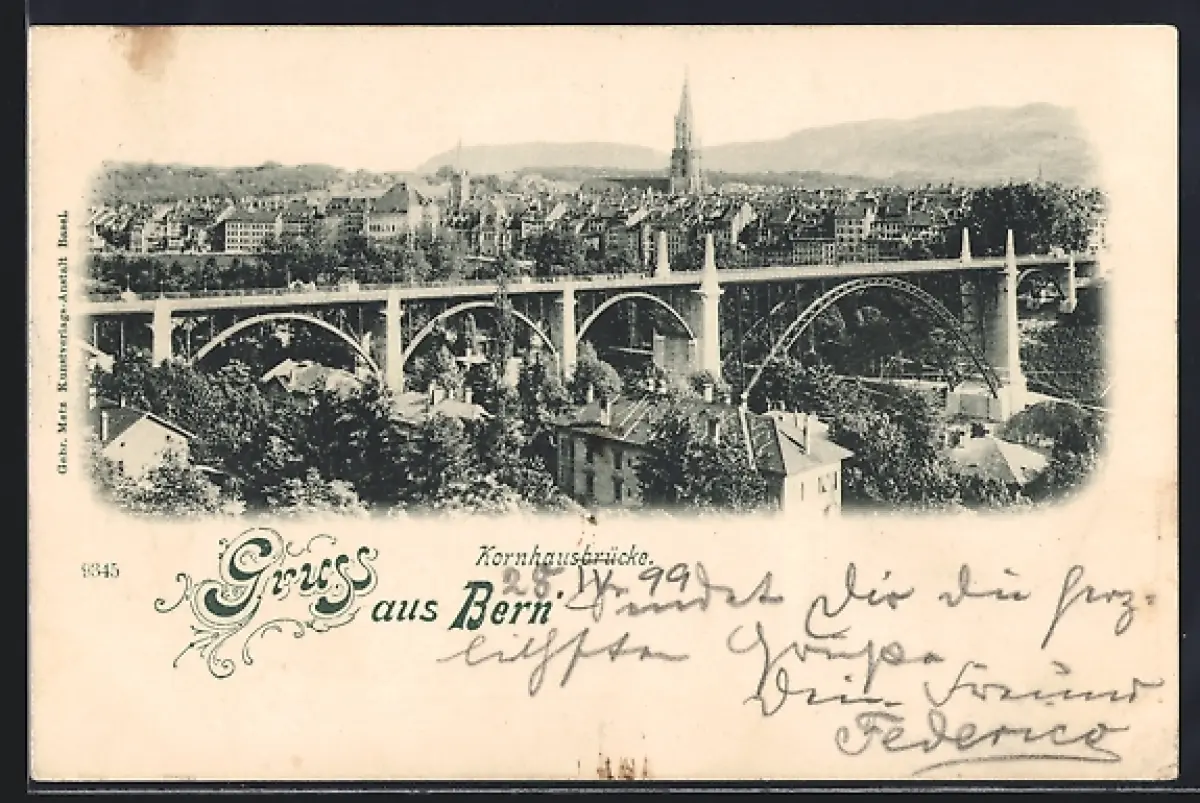 Gebr. Metz Kunstverlags-Anstalt Basel.
Kornhausbrücke.
9345
Gruss
aus Bern
25 IV. 99
Sendet Dir die herz-
lichsten Grüße
Dein Freund
Federico